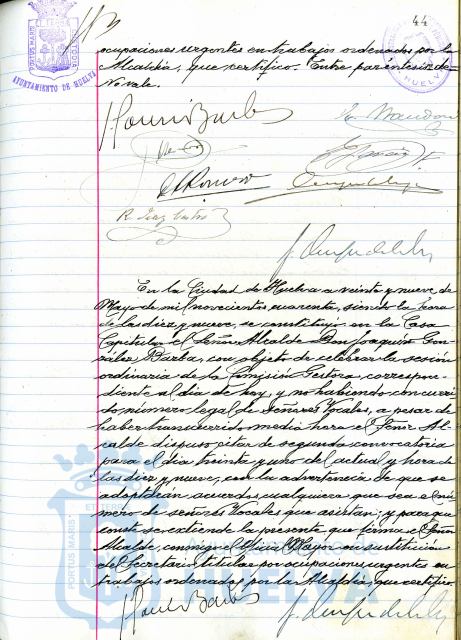 44
PORTUS MARIS ET TERRAE CUSTODIA
AYUNTAMIENTO DE HUELVA
HUELVA
ocupaciones urgentes en trabajos ordenados por la
Alcaldía, que certifico. Entre paréntesis de=
No vale.
En la Ciudad de Huelva a veinte y nueve de
Mayo de mil novecientos cuarenta, siendo la hora
de las diez y nueve, se constituyó en la Casa
Capitular el Señor Alcalde Don Joaquín Gon-
zález Barba, con objeto de celebrar la sesión
ordinaria de la Comisión Gestora, correspon-
diente al día de hoy, y no habiendo concurri-
do número legal de Señores Vocales, a pesar de
haber transcurrido media hora el Señor Al-
calde dispuso citar de segunda convocatoria
para el día treinta y uno del actual y hora de
las diez y nueve, con la advertencia de que se
adoptarán acuerdos cualquiera que sea el nú-
mero de señores Vocales que asistan; y para que
conste se extiende la presente que firma el Señor
Alcalde, conmigo el Oficial Mayor en sustitución
del Secretario titular por ocupaciones urgentes en
trabajos ordenados por la Alcaldía, que certifico.
PORTUS MARIS
Ayuntamiento de
HUELVA